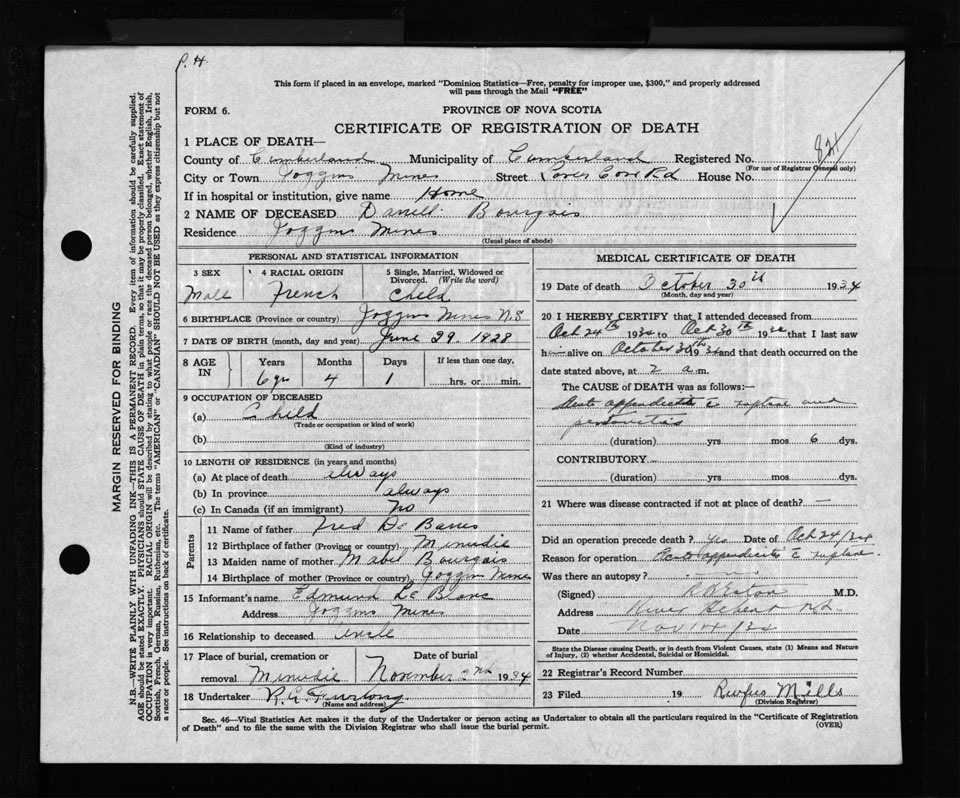 P. H.
This form if placed in an envelope, marked "Dominion Statistics—Free, penalty for improper use, $300," and properly addressed
will pass through the Mail "FREE"
FORM 6.
PROVINCE OF NOVA SCOTIA
CERTIFICATE OF REGISTRATION OF DEATH
1 PLACE OF DEATH—
821
County of Cumberland Municipality of Cumberland Registered No.
(For use of Registrar General only)
City or Town Joggins Mines Street Lower Cove Rd House No.
If in hospital or institution, give name Home
2 NAME OF DECEASED Daniell Bourgois
Residence Joggins Mines
(Usual place of abode)
PERSONAL AND STATISTICAL INFORMATION
3 SEX 4 RACIAL ORIGIN 5 Single, Married, Widowed or
Divorced. (Write the word)
Male French Child
6 BIRTHPLACE (Province or country) Joggins Mines N.S
7 DATE OF BIRTH (month, day and year) June 29. 1928
8 AGE IN Years Months Days If less than one day,
6 yrs 4 1 hrs. or min.
9 OCCUPATION OF DECEASED
(a) Child
(Trade or occupation or kind of work)
(b)
(Kind of industry)
10 LENGTH OF RESIDENCE (in years and months)
(a) At place of death always
(b) In province always
(c) In Canada (if an immigrant) No
Parents
11 Name of father Fred De Barres
12 Birthplace of father (Province or country) Minudie
13 Maiden name of mother Mabel Bourgois
14 Birthplace of mother (Province or country) Joggins Mines
15 Informant's name Edmund Le Blanc
Address Joggins Mines
16 Relationship to deceased Uncle
17 Place of burial, cremation or Date of burial
removal Minudie November 2nd 1934
18 Undertaker R. E. Furlong
(Name and address)
MEDICAL CERTIFICATE OF DEATH
19 Date of death October 30th 1934
(Month, day and year)
20 I HEREBY CERTIFY that I attended deceased from
Oct 24th 1934 to Oct 30th 1934 that I last saw
h— alive on October 30th 1934 and that death occurred on the
date stated above, at 2 a.m.
The CAUSE OF DEATH was as follows:—
Acute appendicitis c rupture and
peritonitis
(duration) yrs. mos 6 dys.
CONTRIBUTORY
(duration) yrs. mos. dys.
21 Where was disease contracted if not at place of death? —
Did an operation precede death? yes Date of Oct 24/34
Reason for operation Acute appendicitis c rupture.
Was there an autopsy?
(Signed) M.D.
Address River Hebert N.S.
Date Nov 14/34
State the Disease causing Death, or in death from Violent Causes, state (1) Means and Nature
of Injury, (2) whether Accidental, Suicidal or Homicidal.
22 Registrar's Record Number
23 Filed 19 Rufus Mills
(Division Registrar)
Sec. 46—Vital Statistics Act makes it the duty of the Undertaker or person acting as Undertaker to obtain all the particulars required in the "Certificate of Registration
of Death" and to file the same with the Division Registrar who shall issue the burial permit. (OVER)
MARGIN RESERVED FOR BINDING
N.B.—WRITE PLAINLY WITH UNFADING INK—THIS IS A PERMANENT RECORD. Every item of information should be carefully supplied.
AGE should be stated EXACTLY. PHYSICIANS should STATE CAUSE OF DEATH in plain terms, so that it may be properly classified. Exact statement of
OCCUPATION is very important. RACIAL ORIGIN will be described by stating to what people or race the deceased person belonged, whether English, Irish,
Scottish, French, German, Russian, Ruthenian, etc. The terms "AMERICAN" or "CANADIAN" SHOULD NOT BE USED as they express citizenship but not
a race or people. See instructions on back of certificate.